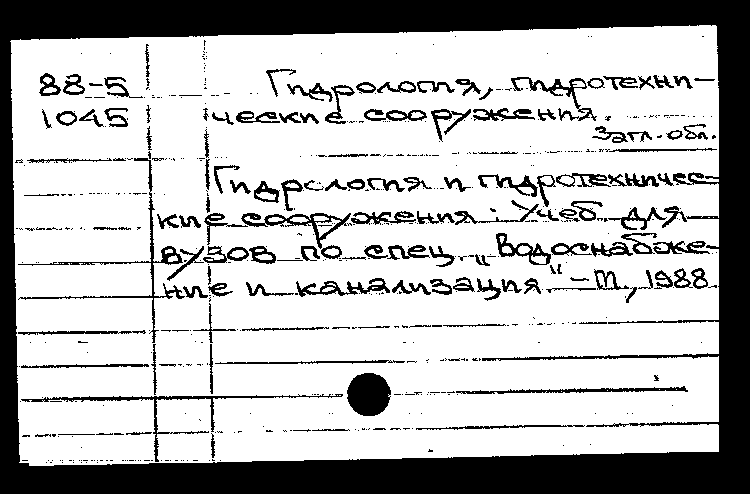 88-5 Гидрология, гидротехни-
1045 ческие сооружения.
Загл. обл.
Гидрология и гидротехничес-
кие сооружения : Учеб. для
вузов по спец. „Водоснабже-
ние и канализация." – М, 1988